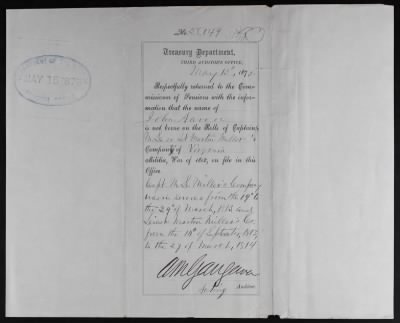 Treasury Department,
THIRD AUDITOR'S OFFICE,
May 13, 187
Respectfully returned to the Com-
missioner of Pensions with the infor-
mation that the name of
John
is not borne on the Rolls of Captains
Lt Martin Miller's
Company of Virginia
Militia, War of 1812, on file in this
Office
Capt. Miller's Company
was in service from the 19th to
the 29th of March, 1813 and
Martin Miller's Co.
from the of September, 1813,
to the 27 of March, 1814
Auditor.
MAY 15 187